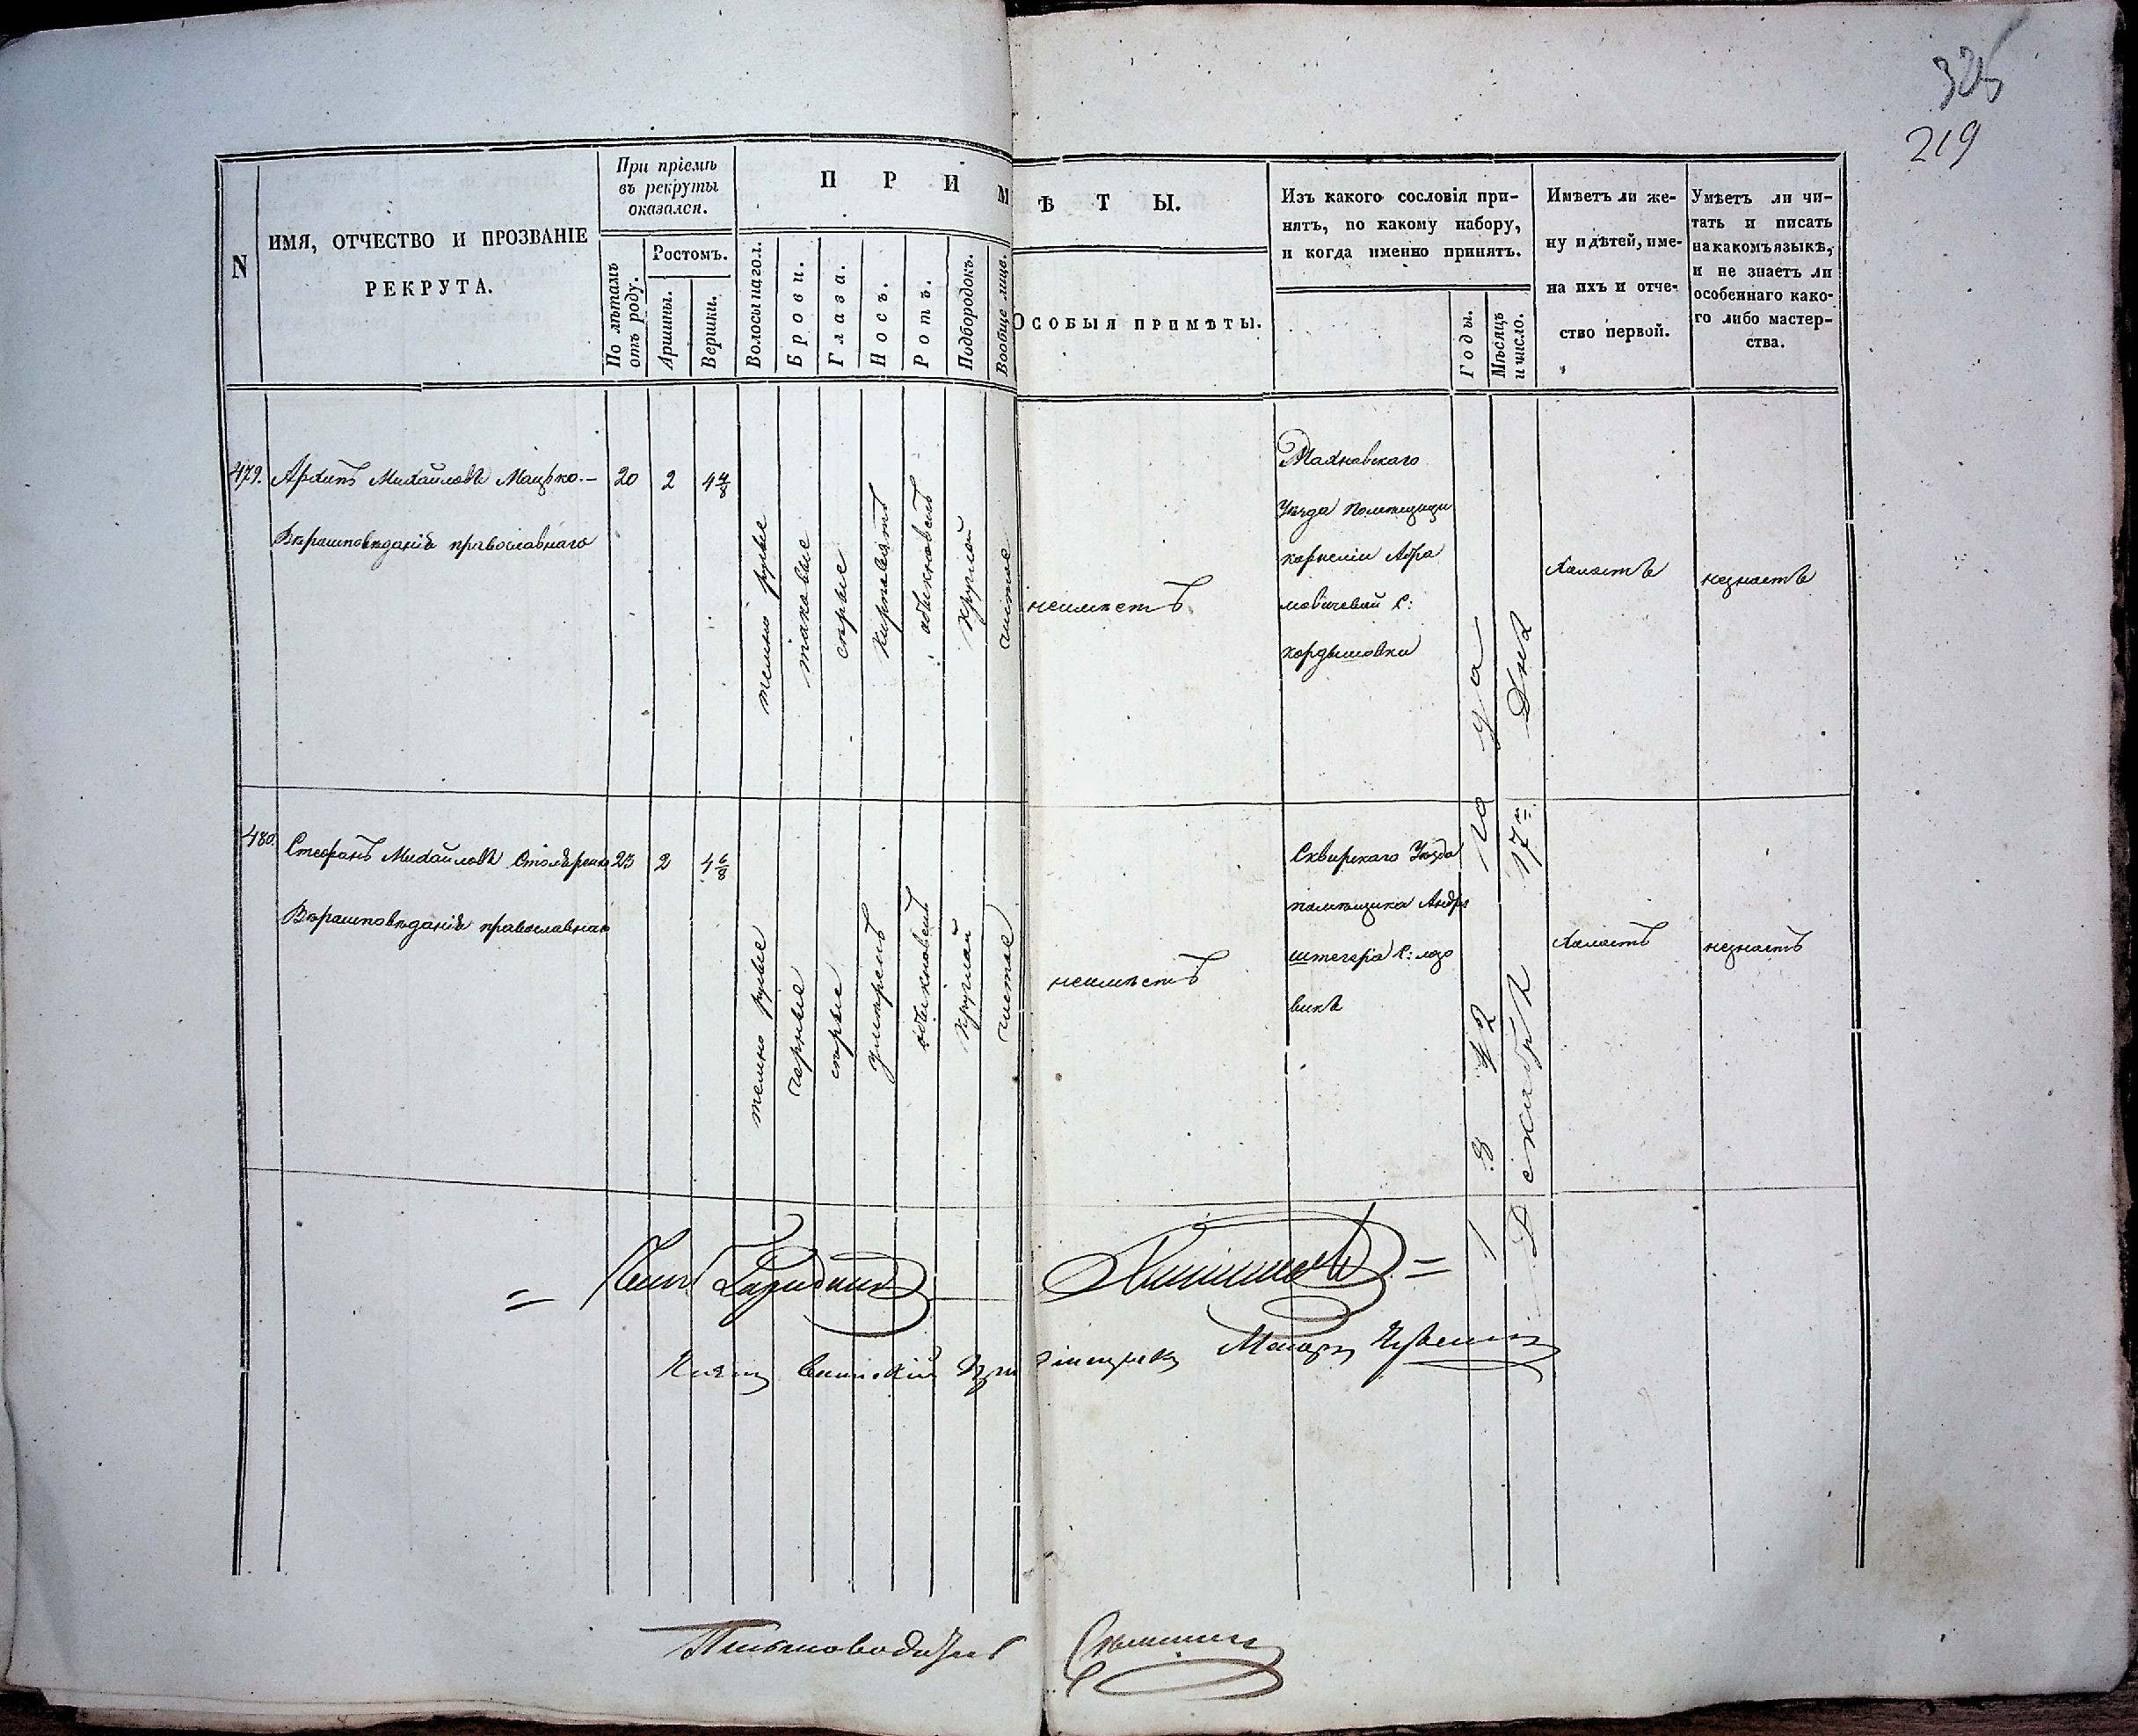 325
219
N
ИМЯ, ОТЧЕСТВО И ПРОЗВАНІЕ
РЕКРУТА.
При пріемѣ
въ рекруты
оказался.
По лѣтамъ
отъ роду.
Ростомъ.
Аршины.
Вершки.
П Р И М Ѣ Т Ы.
Волосы на гол.
Брови.
Глаза.
Носъ.
Ротъ.
Подбородокъ.
Вообще лице.
ОСОБЫЯ ПРИМѢТЫ.
Изъ какого сословія при-
нятъ, по какому набору,
и когда именно принятъ.
Годы.
Мѣсяцъ
и число.
Имѣетъ ли же-
ну и дѣтей, име-
на ихъ и отче-
ство первой.
Умѣетъ ли чи-
тать и писать
на какомъ языкѣ,
и не знаетъ ли
особеннаго како-
го либо мастер-
ства.
479.
Архипъ Михайловъ Мацько.—
Вѣроисповѣданія православнаго
20
2
4 4/8
темно русые
таковые
сѣрые
кирповатъ
обыкновенъ
круглой
чистое
неимѣетъ
Махновскаго
Уѣзда Помѣщицы
корнеліи Абра
мовичевой с:
кордышовки
холостъ
незнаетъ
480.
Стефанъ Михайловъ Столяренко
Вѣроисповѣданія православнаго
23
2
4 6/8
темно русые
чорные
сѣрые
умѣренъ
обыкновенъ
круглой
чистое
неимѣетъ
Сквирскаго Уѣзда
помѣщика Андре
штегера с: лозо
викъ
холостъ
незнаетъ
1842 года
Декабря 17го дня
воинскій
Маіоръ
Письмоводитель